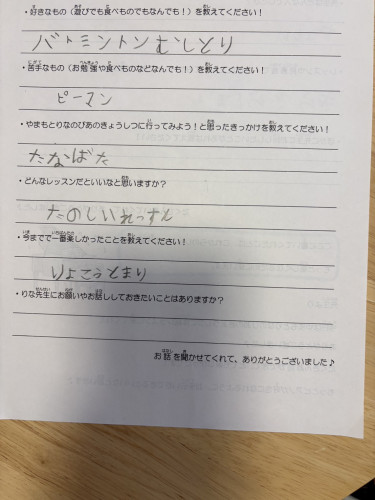 ・好きなもの（遊びでも食べものでもなんでも！）を教えてください！
バトミントンむしとり
・苦手なもの（お勉強や食べものなどなんでも！）を教えてください！
ピーマン
・やまもとりなのぴあのきょうしつに行ってみよう！と思ったきっかけを教えてください！
たなばた
・どんなレッスンだといいなと思いますか？
たのしいれっすん
・今までで一番楽しかったことを教えてください！
りょこうとまり
・りな先生にお願いやお話ししておきたいことはありますか？
お話を聞かせてくれて、ありがとうございました♪